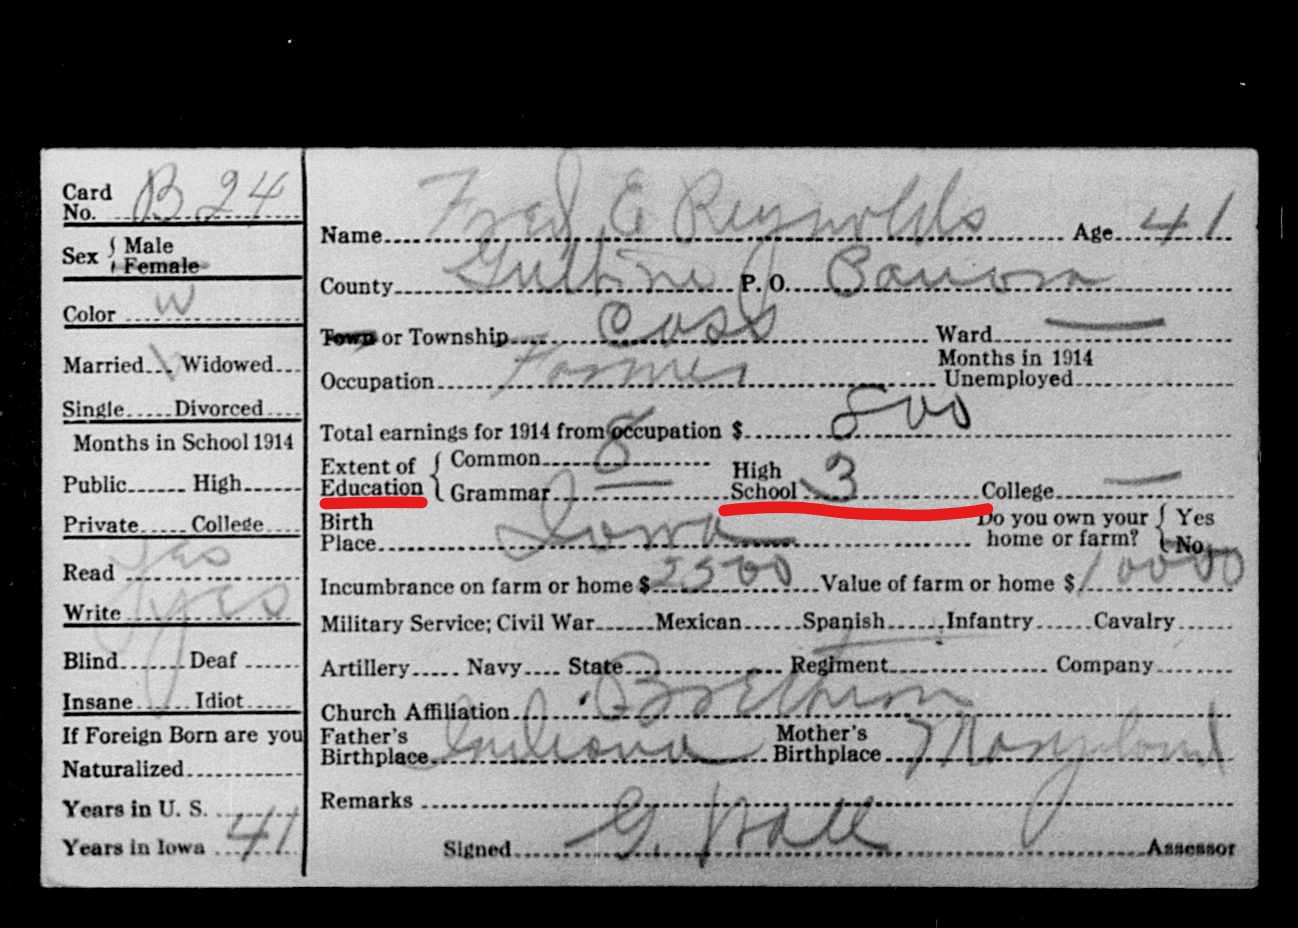 Card No. B 24
Sex { Male
Female
Color W
Married Widowed
Single Divorced
Months in School 1914
Public High
Private College
Read Yes
Write Yes
Blind Deaf
Insane Idiot
If Foreign Born are you
Naturalized
Years in U. S.
Years in Iowa 41
Name Fred E Reynolds Age 41
County Guthrie P. O. 
Town or Township Cass Ward —
Occupation Farmer Months in 1914 Unemployed
Total earnings for 1914 from occupation $ 800
Extent of Education { Common 8
Grammar — High School 3 College —
Birth Place Iowa Do you own your home or farm? { Yes
No
Incumbrance on farm or home $ 2500 Value of farm or home $ 10000
Military Service; Civil War Mexican Spanish Infantry Cavalry
Artillery Navy State Regiment Company
Church Affiliation
Father's Birthplace Indiana Mother's Birthplace Maryland
Remarks
Signed G. Hall Assessor